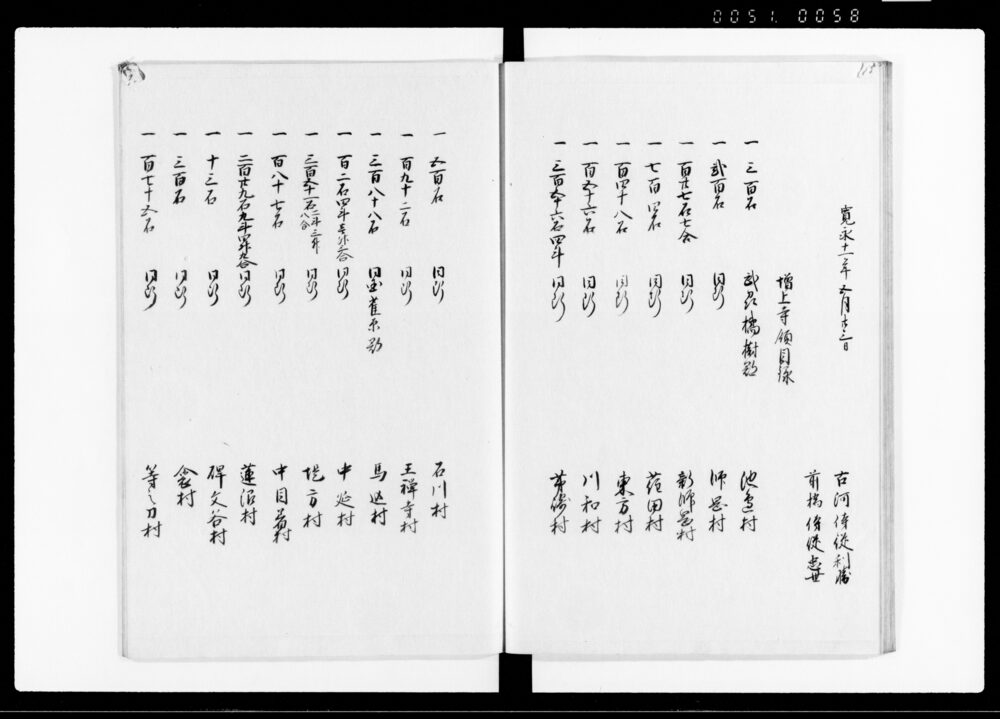 0051. 0058
寛永十二年五月廿三日
古河侍従利勝
前橋侍従忠世
増上寺領目録
一 三百石 武州橘樹郡 池邊村
一 弐百石 同所 師岡村
一 百廿七石七合 同所 新師岡村
一 七百四石 同所 荏田村
一 百四十八石 同所 東方村
一 百五十六石 同所 川和村
一 三百五十六石四斗 同所 茅ヶ崎村
一 五百石 同所 石川村
一 百九十二石 同所 王禅寺村
一 三百八十八石 同国荏原郡 馬込村
一 百二石四斗 同所 中延村
一 三百五十一石二斗三升八合 同所 堤方村
一 百八十七石 同所 中目黒村
一 二百廿九石九斗四升九合 同所 蓮沼村
一 十三石 同所 碑文谷村
一 三百石 同所 衾村
一 百七十五石 同所 等々力村